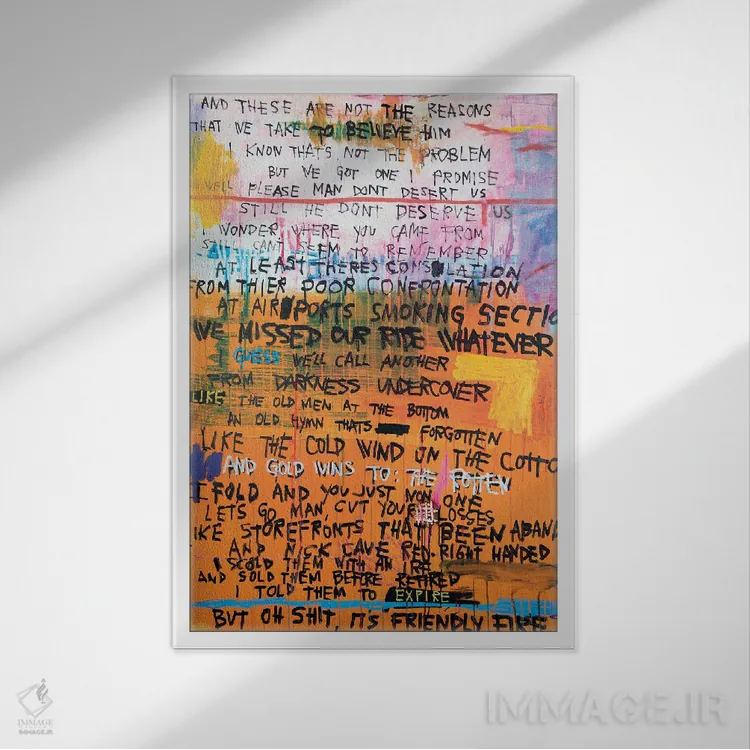 AND THESE ARE NOT THE REASONS
THAT WE TAKE TO BELIEVE HIM
I KNOW THATS NOT THE PROBLEM
BUT I'VE GOT ONE I PROMISE
WELL PLEASE MAN DONT DESERT US
STILL HE DONT DESERVE US
I WONDER WHERE YOU CAME FROM
STILL CANT SEEM TO REMEMBER
AT LEAST THERES CONSOLATION
FROM THIER POOR CONFRONTATION
AT AIRPORTS SMOKING SECTIO
WE MISSED OUR RIDE WHATEVER
GUESS WE'LL CALL ANOTHER
FROM DARKNESS UNDERCOVER
LIKE THE OLD MEN AT THE BOTTOM
AN OLD HYMN THATS FORGOTTEN
LIKE THE COLD WIND ON THE COTTO
AND GOLD WINS TO: THE ROTTEN
I FOLD AND YOU JUST WON ONE
LETS GO MAN, CUT YOUR LOSSES
IKE STOREFRONTS THAT BEEN ABAN
AND NICK CAVE RED RIGHT HANDED
I SCOLD THEM WITH AN IRE
AND SOLD THEM BEFORE RETIRED
I TOLD THEM TO EXPIRE
BUT OH SHIT, IT'S FRIENDLY FIRE
IMMAGE
IMMAGE.IR
IMMAGE.IR